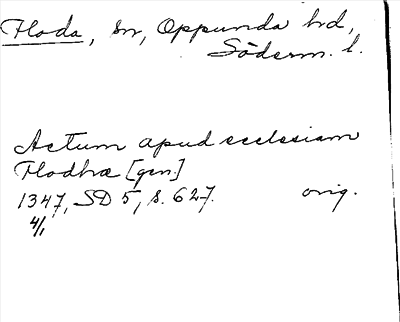 Floda, sn, Oppunda hd,
Söderm. l.
Actum apud ecclesiam
Flodhæ [gen]
1347, SD 5, s. 627. orig.
4/1